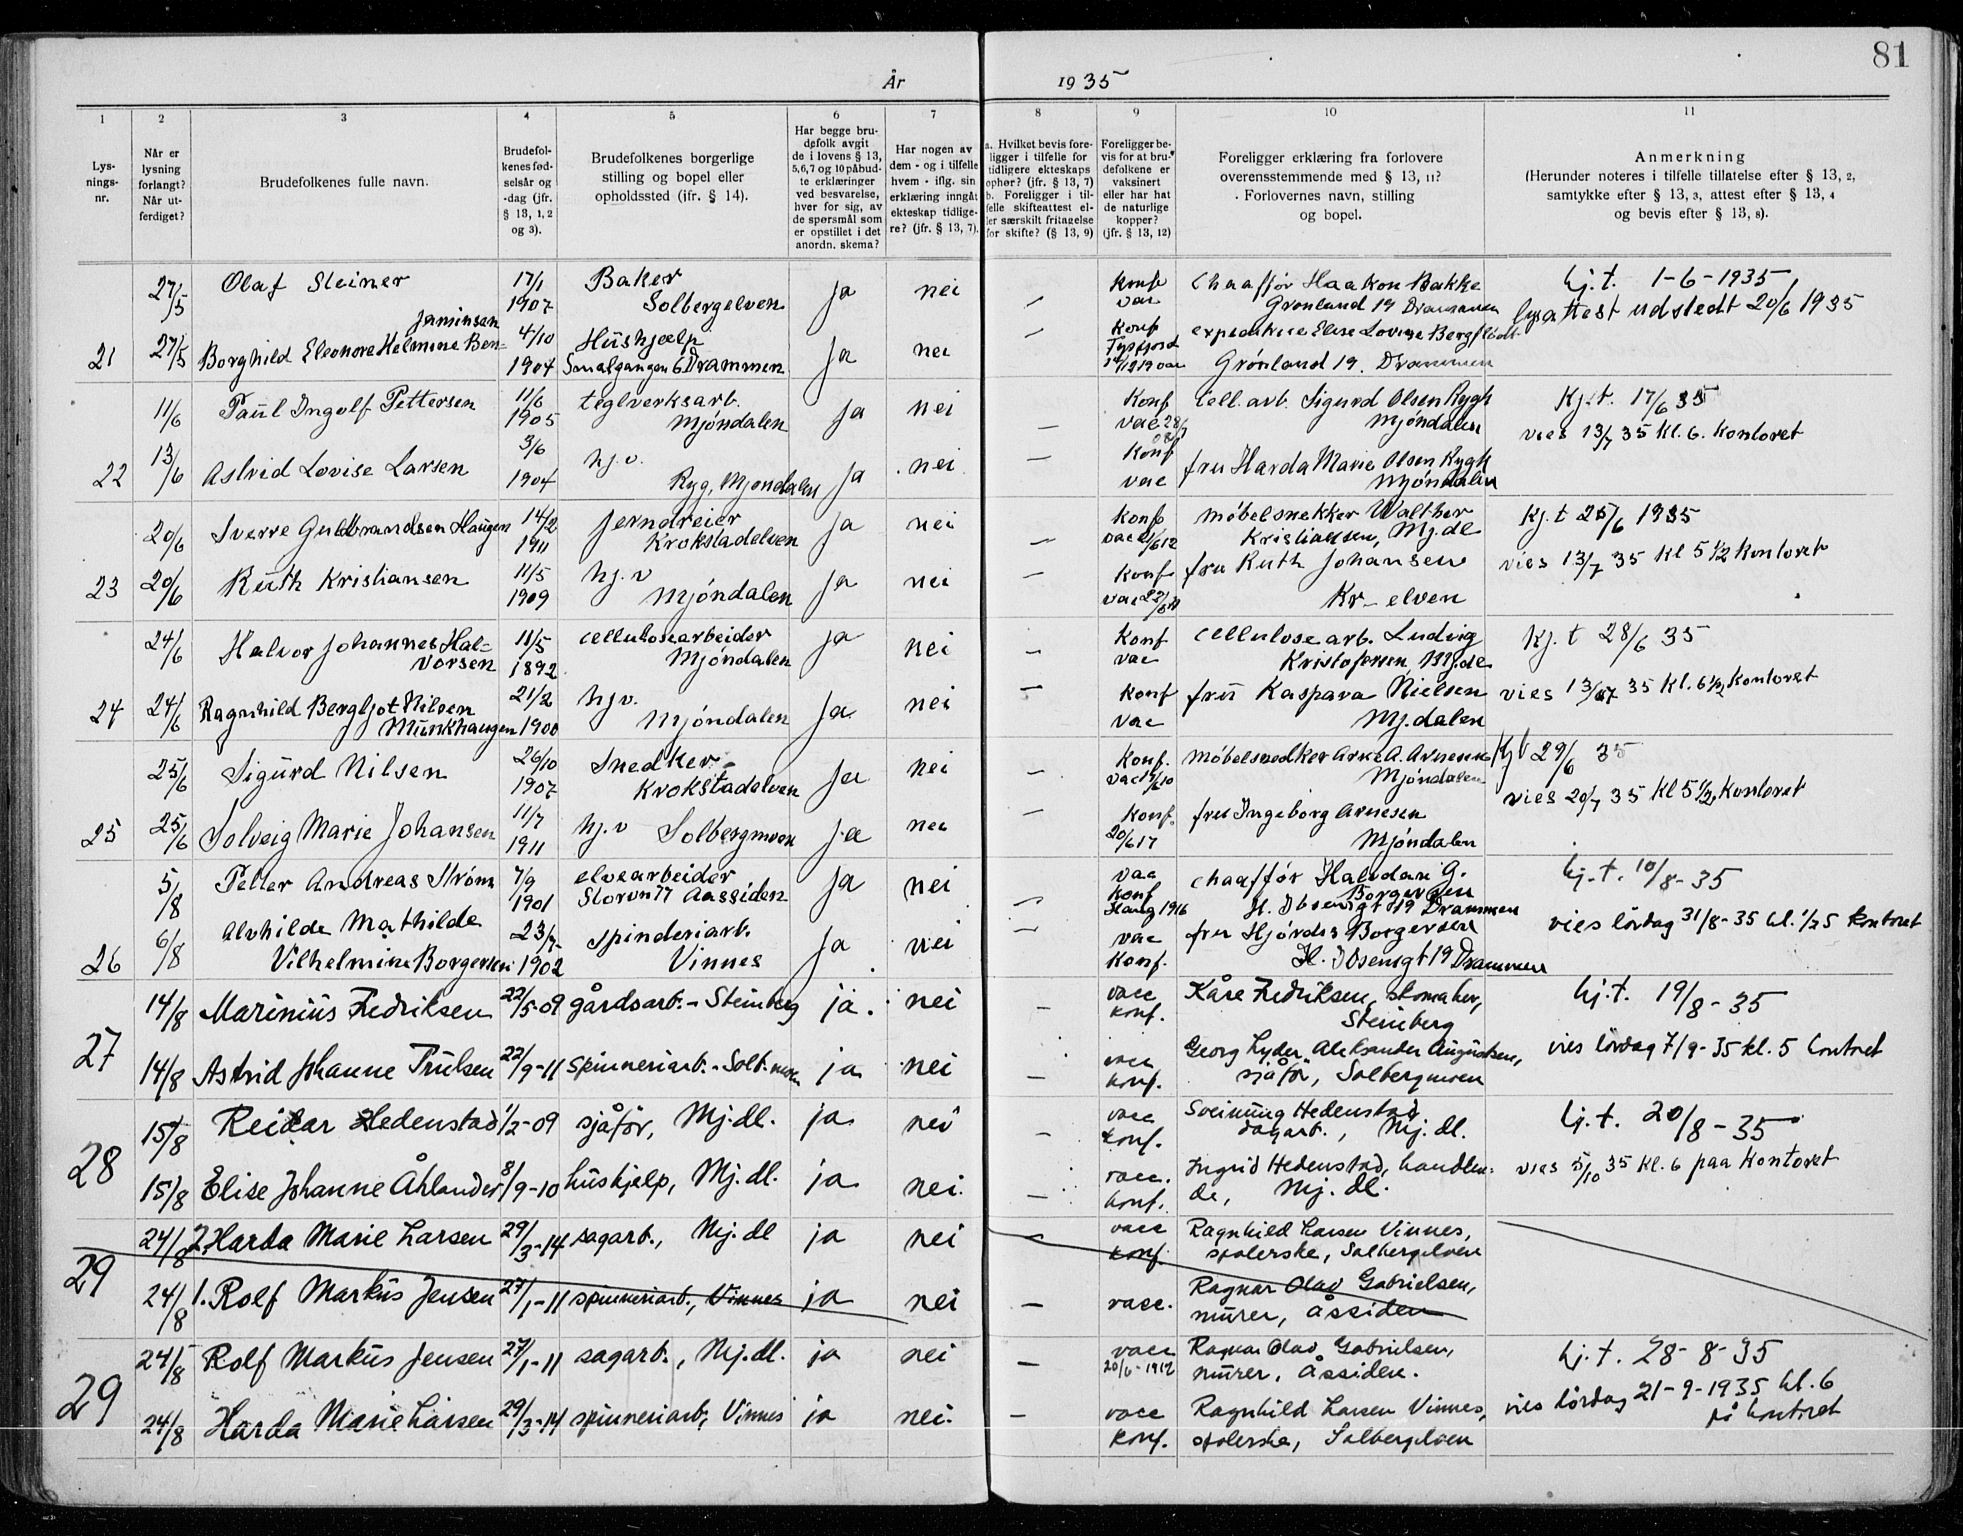 81
År 1935
1 2 3 4 5 6 7 8 9 10 11
Lys-
nings-
nr.
Når er
lysning
forlangt?
Når ut-
ferdiget?
Brudefolkenes fulle navn.
Brudefol-
kenes fød-
selsår og
-dag (jfr.
§ 13, 1, 2
og 3).
Brudefolkenes borgerlige
stilling og bopel eller
opholdssted (ifr. § 14).
Har begge bru-
defolk avgit
de i lovens § 13,
5,6,7 og 10 påbud-
te erklæringer
ved besvarelse,
hver for sig, av
de spørsmål som
er opstillet i det
anordn. skema?
Har nogen av
dem - og i tilfelle
hvem - iflg. sin
erklæring inngåt
ekteskap tidlige-
re? (jfr. § 13, 7).
a. Hvilket bevis fore-
ligger i tilfelle for
tidligere ekteskaps
ophør? (jfr. § 13, 7)
b. Foreligger i til-
felle skifteattest el-
ler særskilt fritagelse
for skifte? (§ 13, 9)
Foreligger be-
vis for at bru-
defolkene er
vaksinert
eller har hat
de naturlige
kopper?
(jfr. § 13, 12)
Foreligger erklæring fra forlovere
overensstemmende med § 13, 11?
Forlovernes navn, stilling
og bopel.
Anmerkning
(Herunder noteres i tilfelle tillatelse efter § 13, 2,
samtykke efter § 13, 3, attest efter § 13, 4
og bevis efter § 13, 8).
27/5 Olaf Steiner 17/1 1907 Baker Solbergelven ja nei — Konf vac Chaaffør Haakon Bakke Grønland 19 Drammen kj.t. 1-6-1935
lysattest udstedt 20/6 1935
21 27/5 Borghild Eleonore Helmine Ben-
jaminsen 4/10 1904 Hüshjælp Smalgangen 6 Drammen ja nei — Konf Tysfjord 1919 vac Elise Lovise Grønland 19. Drammen
11/6 Paül Ingolf Pettersen 11/6 1905 teglverksarb. Mjöndalen ja nei — Konf vac 28/7 Cell. arb. Sigurd Olsen Rygh Mjöndalen Kj.t. 17/6 35
vies 13/7 35 kl. 6. kontoret
22 13/6 Astrid Lovise Larsen 3/6 1904 hj.v. Ryg, Mjøndalen ja nei — Konf vac fru Harda Marie Olsen Rygh Mjøndalen
20/6 Sverre Guldbrandsen Haugen 14/2 1911 jerndreier Krokstadelven ja nei — Konf vac /6 12 Møbelsnekker Walther Kristiansen, Mj.dl Kj.t 25/6 1935
vies 13/7 35 kl 5 1/2 kontoret
23 20/6 Rüth Kristiansen 11/5 1909 hj.v Mjöndalen ja nei — Konf vac fru Ruth Johansen Kr-elven
24/6 Halvor Johannes Hal-
vorsen 11/5 1892 Cellulosearbeider Mjöndalen ja nei — Konf vac Cellulosearb. Ludvig Kristofersen, Mj.de Kj.t 28/6 35
vies 13/7 35 kl. 6 1/2, kontoret
24 24/6 Ragnhild Bergljot Nilsen
Münkhaugen 21/2 1900 hjv. Mjöndalen ja nei — Konf vac frü Kaspara Nielsen Mj.dalen
25/6 Sigürd Nilsen 26/10 1907 Snedker Krokstadelven ja nei — Konf. vac /6 10 Møbelsnedker Arne A. Arnesen Mjöndalen Kjt 29/6 35
vies 20/7 35 kl 5 1/2, kontoret
25 25/6 Solveig Marie Johansen 11/7 1911 hj.v Solbergmoen ja nei — Konf. 20/6 17 fru Ingeborg Arnesen Mjöndalen
5/8 Petter Andreas Strøm 7/9 1901 elvearbeider Storvn 77 Aassiden ja nei — vac Konf 1916 Chaaffør Halvdan G. Borgersen H. Ibsensgt 19 Drammen kj.t. 10/8-35
vies lördag 31/8-35 kl. 1/2 5 kontoret
26 6/8 Alvhilde Mathilde
Vilhelmine Borgersen 23/7 1902 Spinderiarb. Vinnes ja nei — vac Konf. fru Hjördis Borgersen H. Ibsensgt 19 Drammen
27 14/8 Marinius Fredriksen 22/5-09 gårdsarb. - Steinberg ja. nei — vacc konf. Kåre Fredriksen, skomaker, Steinberg kj.t. 19/8-35
vies lördag 7/9-35 kl. 5 kontoret
14/8 Astrid Johanne Trulsen 22/9-11 spinneriarb. - Solb.moen ja nei — vacc konf. Georg Lyder Aleksander Augustsen, sjåför, Solbergmoen
28 15/8 Reidar Hedenstad 1/2-09 sjåför, Mj.dl. ja nei — vacc konf. Sveinung Hedenstad dagarb., Mj.dl. kj.t. 20/8-35
vies 5/10 35 kl. 6 paa kontoret
15/8 Elise Johanne Åhlander 8/9-10 hüshjelp, Mj.dl. ja nei. — vacc. konf. Ingrid Hedenstad, handlen-
de, Mj.dl.
29 24/8 2. Harda Marie Larsen 29/3-14 sagarb., Mj.dl ja nei — vacc konf. Ragnhild Larsen Vinnes, spolerske, Solbergelven
24/8 1. Rolf Markus Jensen 27/1-11 spinneriarb., Vinnes ja nei — vacc. Ragnar Olav Gabrielsen, mürer, Åssiden
29 24/8 Rolf Markus Jensen 27/1-11 sagarb., Mj.dl. ja nei — vacc 20/6-1912 Ragnar Olav Gabrielsen, mürer, Åssiden. kj.t. 28-8-35
vies lördag 21-9-1935 kl. 6
på kontoret
24/8 Harda Marie Larsen 29/3-14 spinneriarb., Vinnes ja nei. — vacc konf. Ragnhild Larsen Vinnes, spolerske, Solbergelven